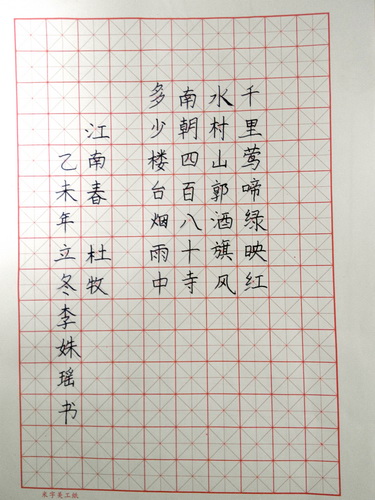 千里莺啼绿映红
水村山郭酒旗风
南朝四百八十寺
多少楼台烟雨中
江南春 杜牧
乙未年立冬李姝瑶书
米字美工纸